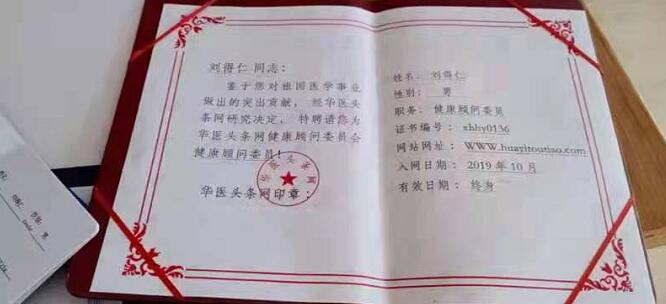 刘得仁 同志：
鉴于您对祖国医学事业
做出的突出贡献，经华医头
条网研究决定，特聘请您为
华医头条网健康顾问委员会
健康顾问委员！
华医头条网印章：
华医头条网
姓名： 刘得仁
性别： 男
职务： 健康顾问委员
证书编号：xhhy0136
网站网址：WWW.huayitoutiao.com
入网日期：2019 年 10 月
有效日期： 终身
性别： 男